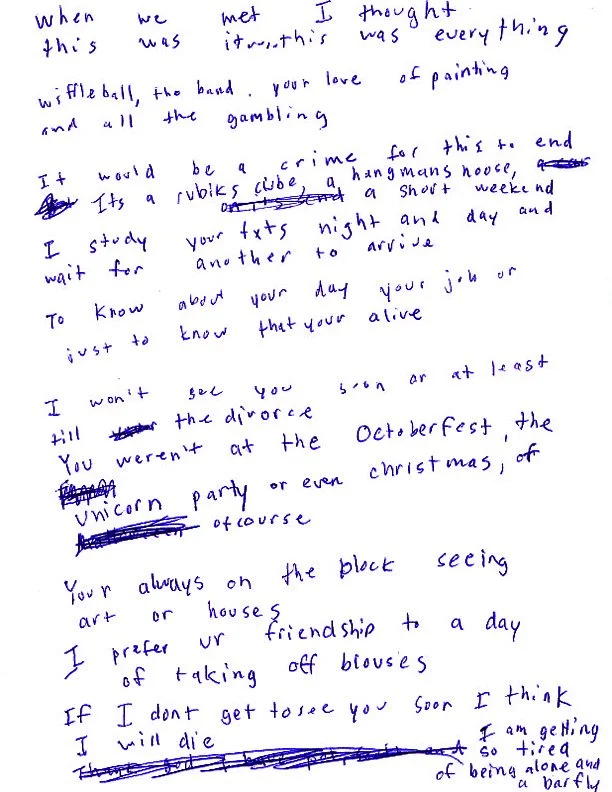 When we met I thought
this was it....this was everything
wiffleball, the band. your love of painting
and all the gambling
It would be a crime for this to end
Its a rubiks cube, a hangmans noose,
on its end a short weekend
I study your txts night and day and
wait for another to arrive
To know about your day your job or
just to know that your alive
I won't see you soon or at least
till the divorce
You weren't at the Octoberfest, the
Unicorn party or even christmas, of
ofcourse
Your always on the block seeing
art or houses
I prefer ur friendship to a day
of taking off blouses
If I dont get tosee you soon I think
I will die
Thank god I have pot,
I am getting
so tired
of being alone and
a barfly